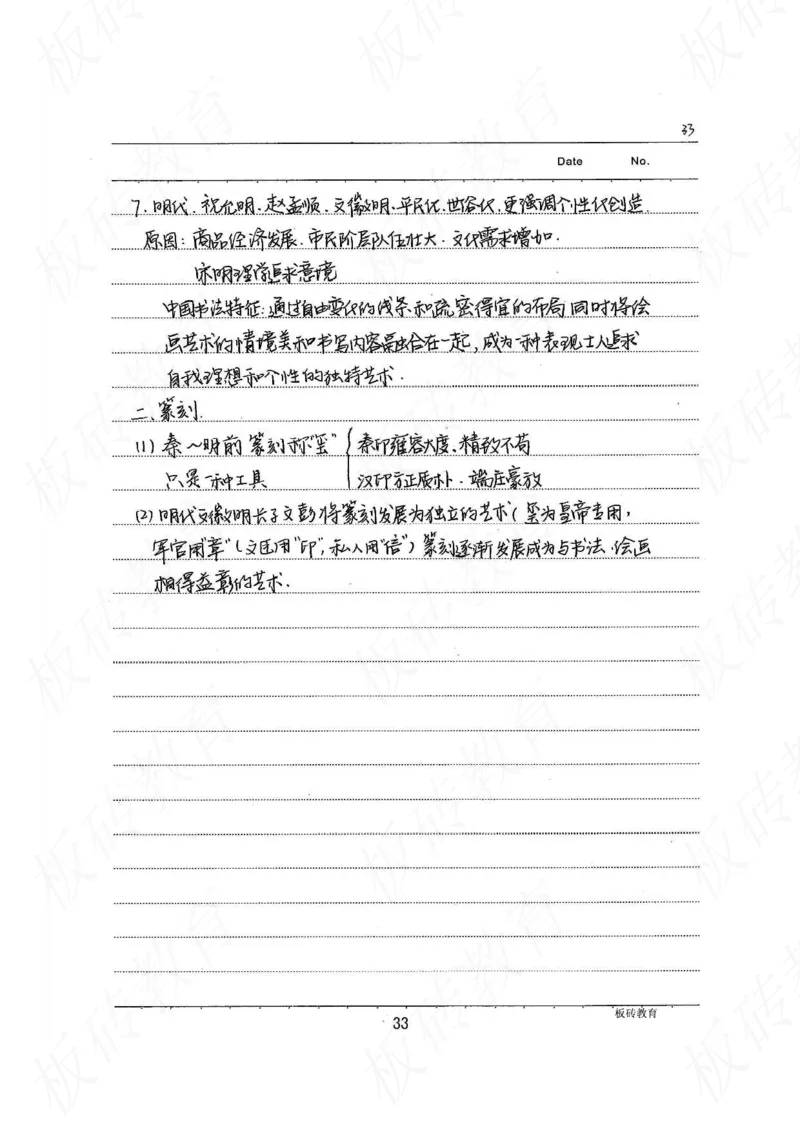 33
Date No.
7. 明代. 祝允明. 赵孟頫. 文徵明. 平民化. 世俗化. 更强调个性化创造.
原因: 商品经济发展. 市民阶层队伍壮大. 文化需求增加.
宋明理学追求意境
中国书法特征: 通过自由变化的线条和疏密得宜的布局同时将绘
画艺术的情境美和书写内容融合在一起, 成为一种表现士人追求
自我理想和个性的独特艺术.
二、篆刻.
(1) 秦~明前 篆刻称"玺" { 秦印雍容大度. 精致不苟
只是一种工具 汉印方正质朴. 端庄豪放
(2) 明代文徵明长子文彭将篆刻发展为独立的艺术 ( 玺为皇帝专用,
军官用"章" ( 文臣用"印", 私人用"信" ) 篆刻逐渐发展成为与书法. 绘画
相得益彰的艺术.
板砖教育
33
板砖教育